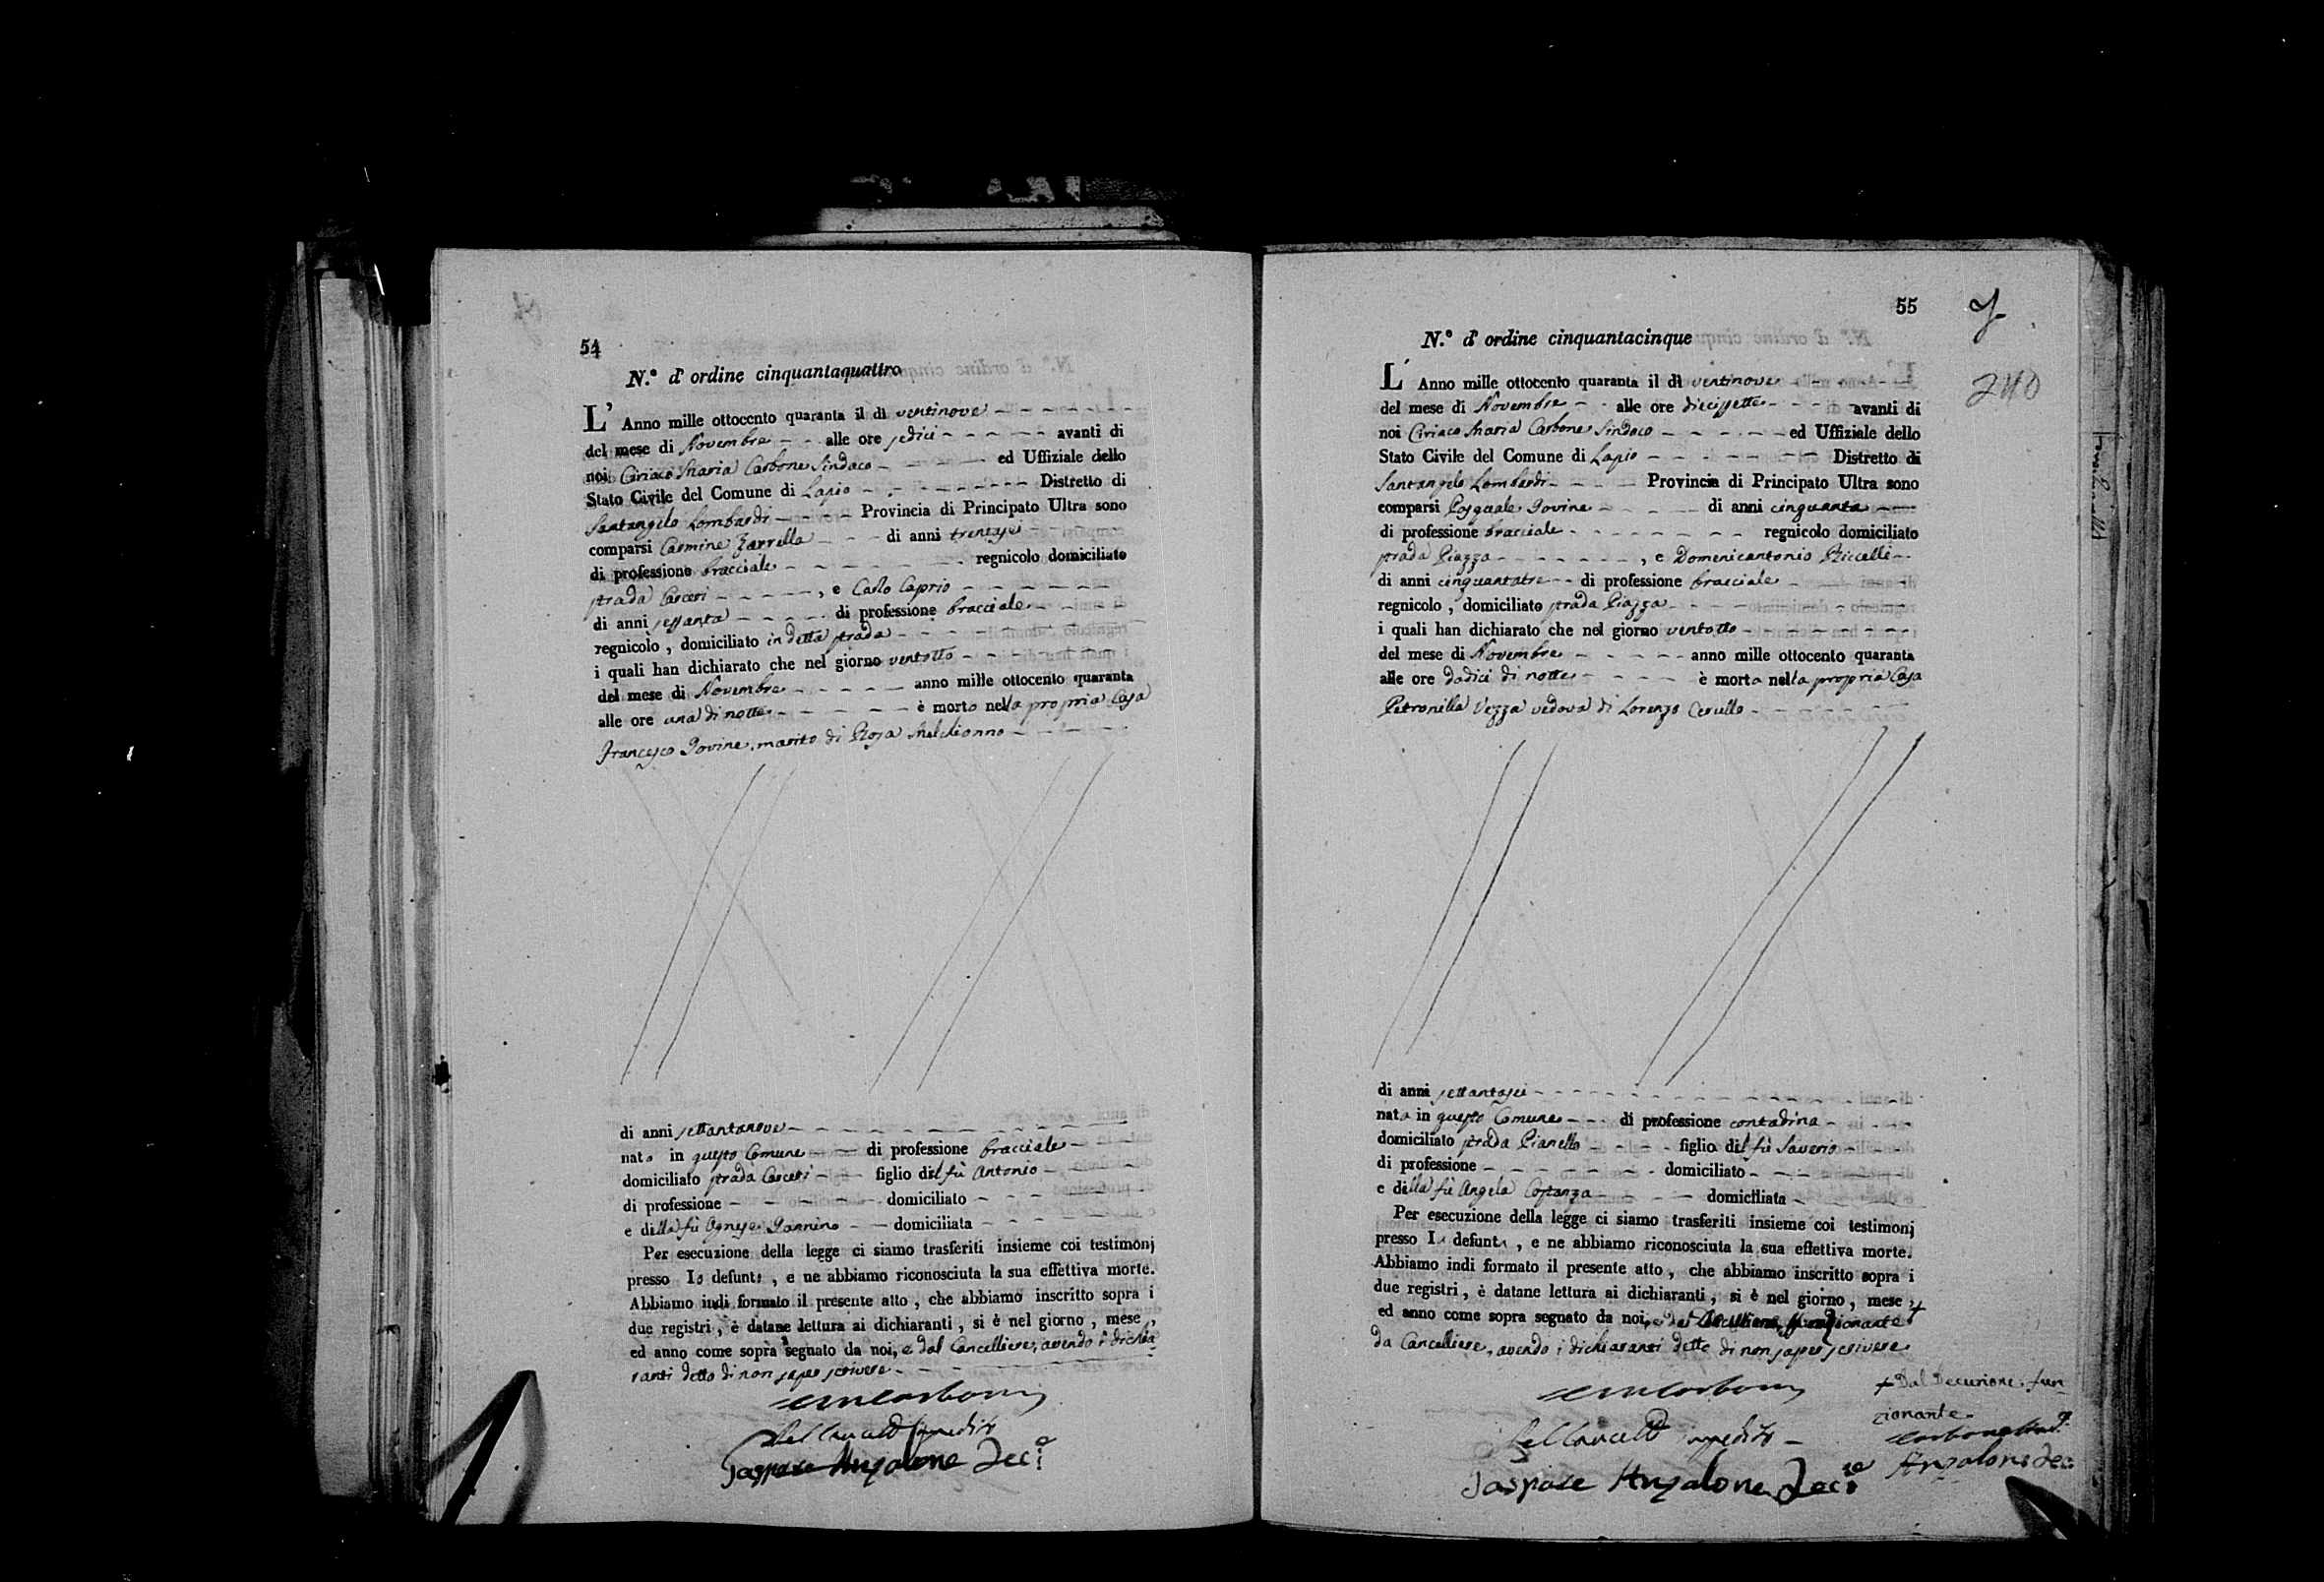 54
N.º d' ordine cinquantaquattro
L' Anno mille ottocento quaranta il dì ventinove
del mese di Novembre alle ore sedici avanti di
noi Ciriaco Maria Carbone Sindaco ed Uffiziale dello
Stato Civile del Comune di Lapio Distretto di
Santangelo Lombardi Provincia di Principato Ultra sono
comparsi Carmine Zarrella di anni trentasei
di professione bracciale regnicolo domiciliato
strada Carceri , e Carlo Caprio
di anni sessanta di professione bracciale
regnicolo , domiciliato in detta strada
i quali han dichiarato che nel giorno ventotto
del mese di Novembre anno mille ottocento quaranta
alle ore una di notte è morto nella propria Casa
Francesco Iovine, marito di Rosa Melchionno
di anni settantanove
nato in questo Comune di professione bracciale
domiciliato strada Carceri figlio del fù Antonio
di professione domiciliato
e della fù Agnese Iannino domiciliata
Per esecuzione della legge ci siamo trasferiti insieme coi testimonj
presso lo defunto , e ne abbiamo riconosciuta la sua effettiva morte.
Abbiamo indi formato il presente atto , che abbiamo inscritto sopra i
due registri , è datane lettura ai dichiaranti , si è nel giorno , mese ,
ed anno come sopra segnato da noi, e dal Cancelliere, avendo i dichia
ranti detto di non saper scrivere
CMCarbone
Pel Cancell impedito
Gaspare Anzalone Dec.e
55
N.º d' ordine cinquantacinque
240
L' Anno mille ottocento quaranta il dì ventinove
del mese di Novembre alle ore diecissette avanti di
noi Ciriaco Maria Carbone Sindaco ed Uffiziale dello
Stato Civile del Comune di Lapio Distretto di
Santangelo Lombardi Provincia di Principato Ultra sono
comparsi Pasquale Iovine di anni cinquanta
di professione bracciale regnicolo domiciliato
strada Piazza , e Domenicantonio Riccelli
di anni cinquantatre di professione bracciale
regnicolo , domiciliato strada Piazza
i quali han dichiarato che nel giorno ventotto
del mese di Novembre anno mille ottocento quaranta
alle ore dodici di notte è morta nella propria Casa
Petronilla Vezza vedova di Lorenzo Cerullo
di anni settantasei
nata in questo Comune di professione contadina
domiciliato strada Pianello figlia del fù Saverio
di professione domiciliato
e della fù Angela Costanza domiciliata
Per esecuzione della legge ci siamo trasferiti insieme coi testimonj
presso la defunta , e ne abbiamo riconosciuta la sua effettiva morte.
Abbiamo indi formato il presente atto , che abbiamo inscritto sopra i
due registri , è datane lettura ai dichiaranti , si è nel giorno , mese , +
ed anno come sopra segnato da noi, e dal Decurione funzionante
da Cancelliere, avendo i dichiaranti detto di non saper scrivere
+ Dal Decurione fun
zionante
CMCarbone
Carbone Sind.
Pel Cancell impedito
Anzalone Dec.
Gaspare Anzalone Dec.e